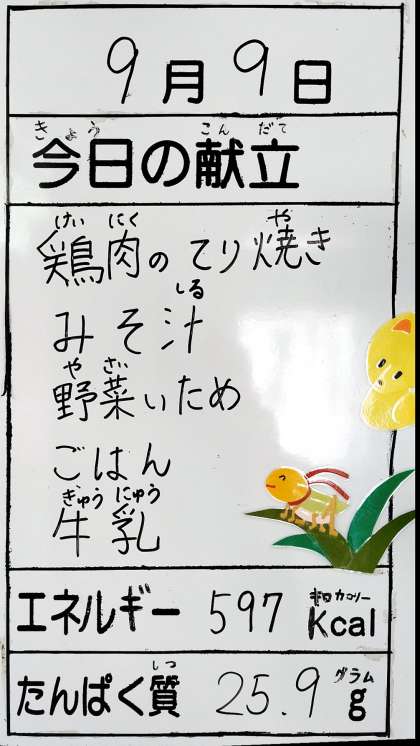 9月9日
きょう こんだて
今日の献立
けい にく や
鶏肉のてり焼き
しる
みそ汁
や さい
野菜いため
ごはん
ぎゅう にゅう
牛乳
キロカロリー
エネルギー 597 Kcal
しつ グラム
たんぱく質 25.9 g